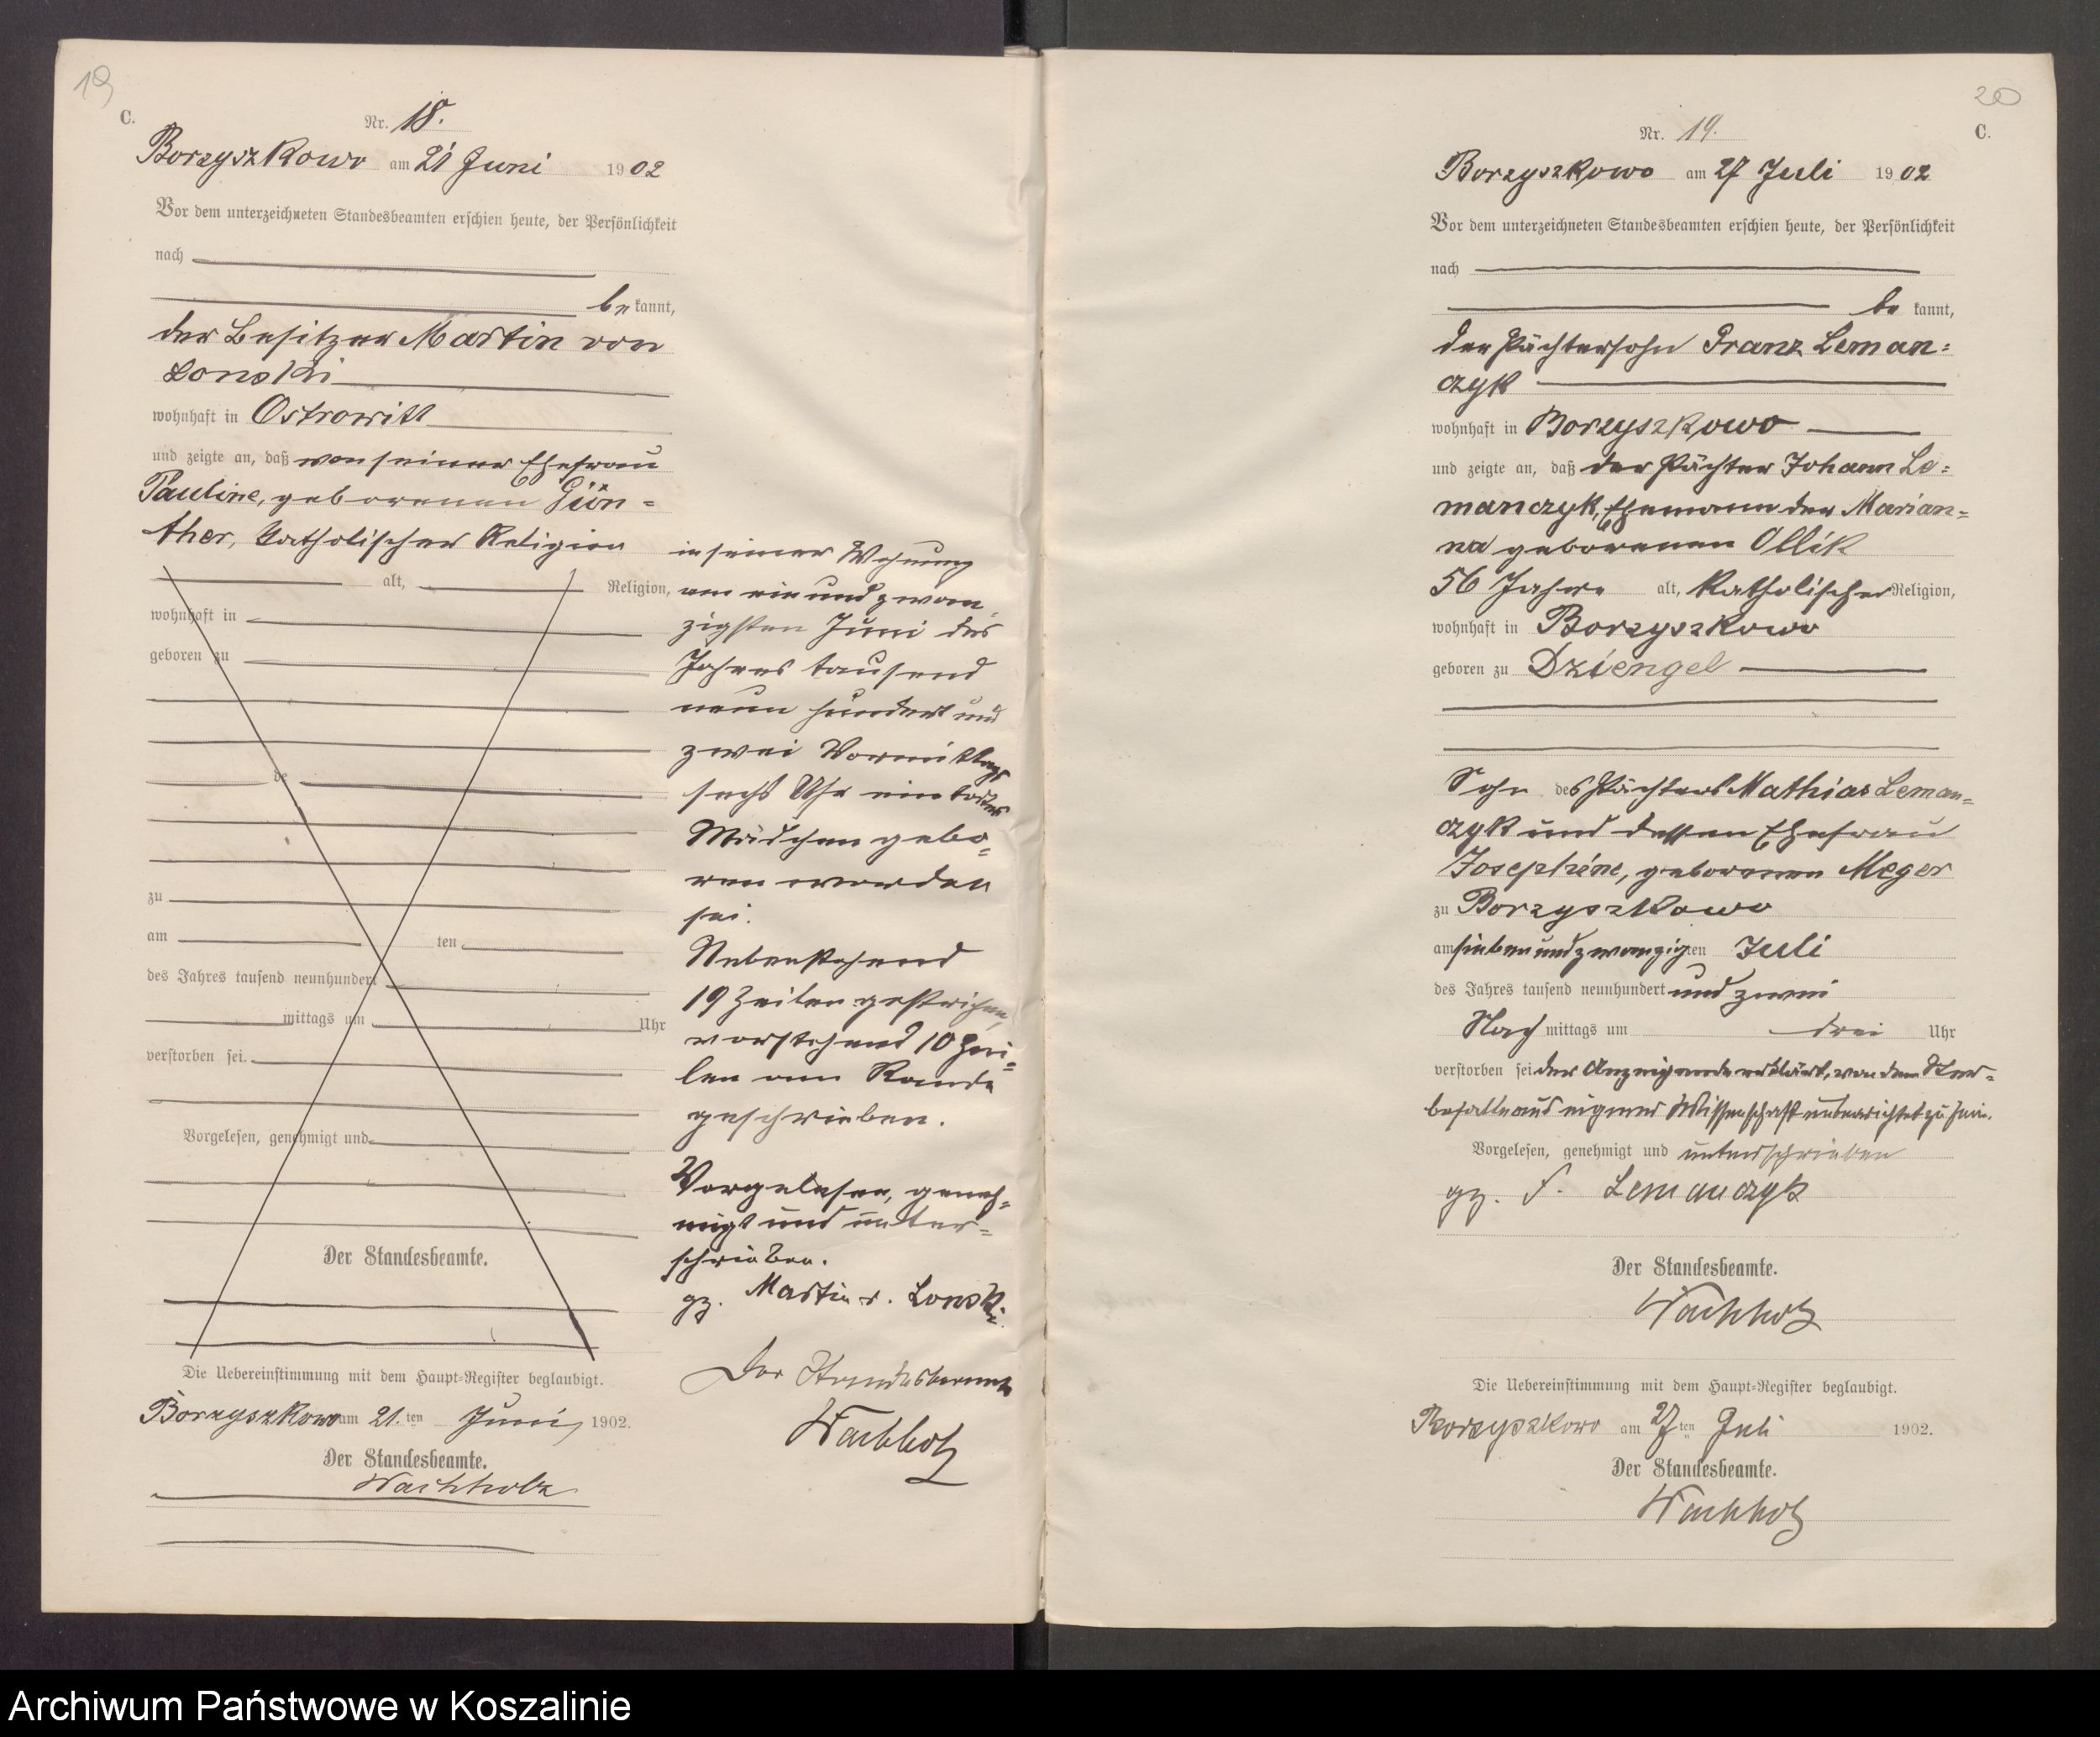 19
C.
Nr. 18.
Borzyszkowo am 21 Juni 1902
Vor dem unterzeichneten Standesbeamten erschien heute, der Persönlichkeit
nach
bekannt,
der Besitzer Martin von
Lonski
wohnhaft in Ostrowitt
und zeigte an, daß von seiner Ehefrau
Pauline, geborenen Gün=
ther, katholischer Religion
alt, Religion,
wohnhaft in
geboren zu
de
zu
am ten
des Jahres tausend neunhundert
mittags um Uhr
verstorben sei.
Vorgelesen, genehmigt und
Der Standesbeamte.
in seiner Wohnung
am ein und zwan
zigsten Juni des
Jahres tausend
neun hundert und
zwei Vormittags
sechs Uhr ein todtes
Mädchen gebo=
ren worden
sei.
Nebenstehend
19 Zeilen gestrichen,
vorstehend 10 Zei=
len am Rande
geschrieben.
Vorgelesen, geneh=
migt und unter=
schrieben.
gz. Martin v. Lonski.
Der Standesbeamte
Wachholz
Die Uebereinstimmung mit dem Haupt=Register beglaubigt.
Borzyszkowo am 21.ten Juni 1902.
Der Standesbeamte.
Wachholz
20
C.
Nr. 19.
Borzyszkowo am 27 Juli 1902
Vor dem unterzeichneten Standesbeamten erschien heute, der Persönlichkeit
nach
bekannt,
der Pächtersohn Franz Leman=
czyk
wohnhaft in Borzyszkowo
und zeigte an, daß der Pächter Johann Le=
manczyk, Ehemann der Marian=
na geborenen Ollik
56 Jahre alt, katholischer Religion,
wohnhaft in Borzyszkowo
geboren zu Dziengel
Sohn des Pächters Mathias Leman=
czyk und dessen Ehefrau
Josephine, geborenen Meger
zu Borzyszkowo
am sieben und zwanzigten Juli
des Jahres tausend neunhundert und zwei
Nachmittags um drei Uhr
verstorben sei der Anzeigende erklärt, von dem Ster=
befalle aus eigener Wissenschaft unterrichtet zu sein.
Vorgelesen, genehmigt und unterschrieben
gz. F. Lemanczyk
Der Standesbeamte.
Wachholz
Die Uebereinstimmung mit dem Haupt=Register beglaubigt.
Borzyszkowo am 27ten Juli 1902.
Der Standesbeamte.
Wachholz
Archiwum Państwowe w Koszalinie